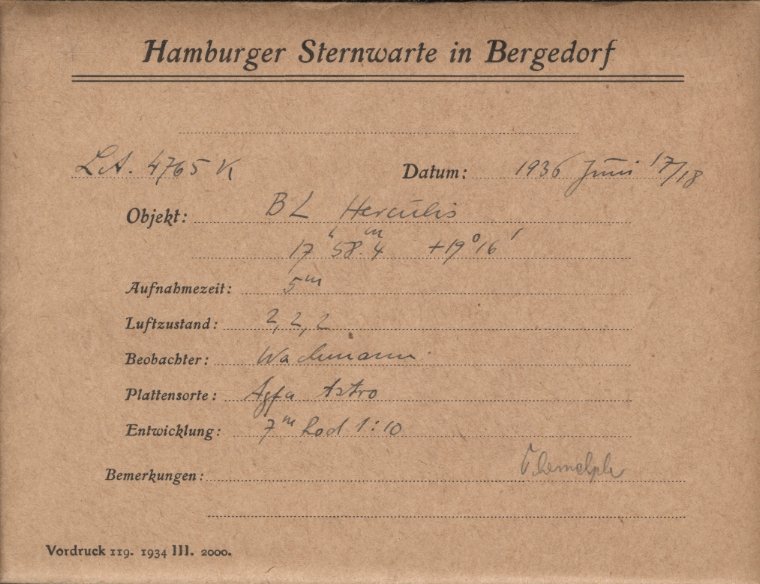 Hamburger Sternwarte in Bergedorf
L.A. 4765 K Datum: 1936 Juni 17/18
Objekt: BL Herculis
17ʰ 58.ᵐ4 +19° 16'
Aufnahmezeit: 5ᵐ
Luftzustand: 2, 2, 2
Beobachter: Wachmann
Plattensorte: Agfa Astro
Entwicklung: 7ᵐ Rod 1:10
Bemerkungen:
Vordruck 119. 1934 III. 2000.